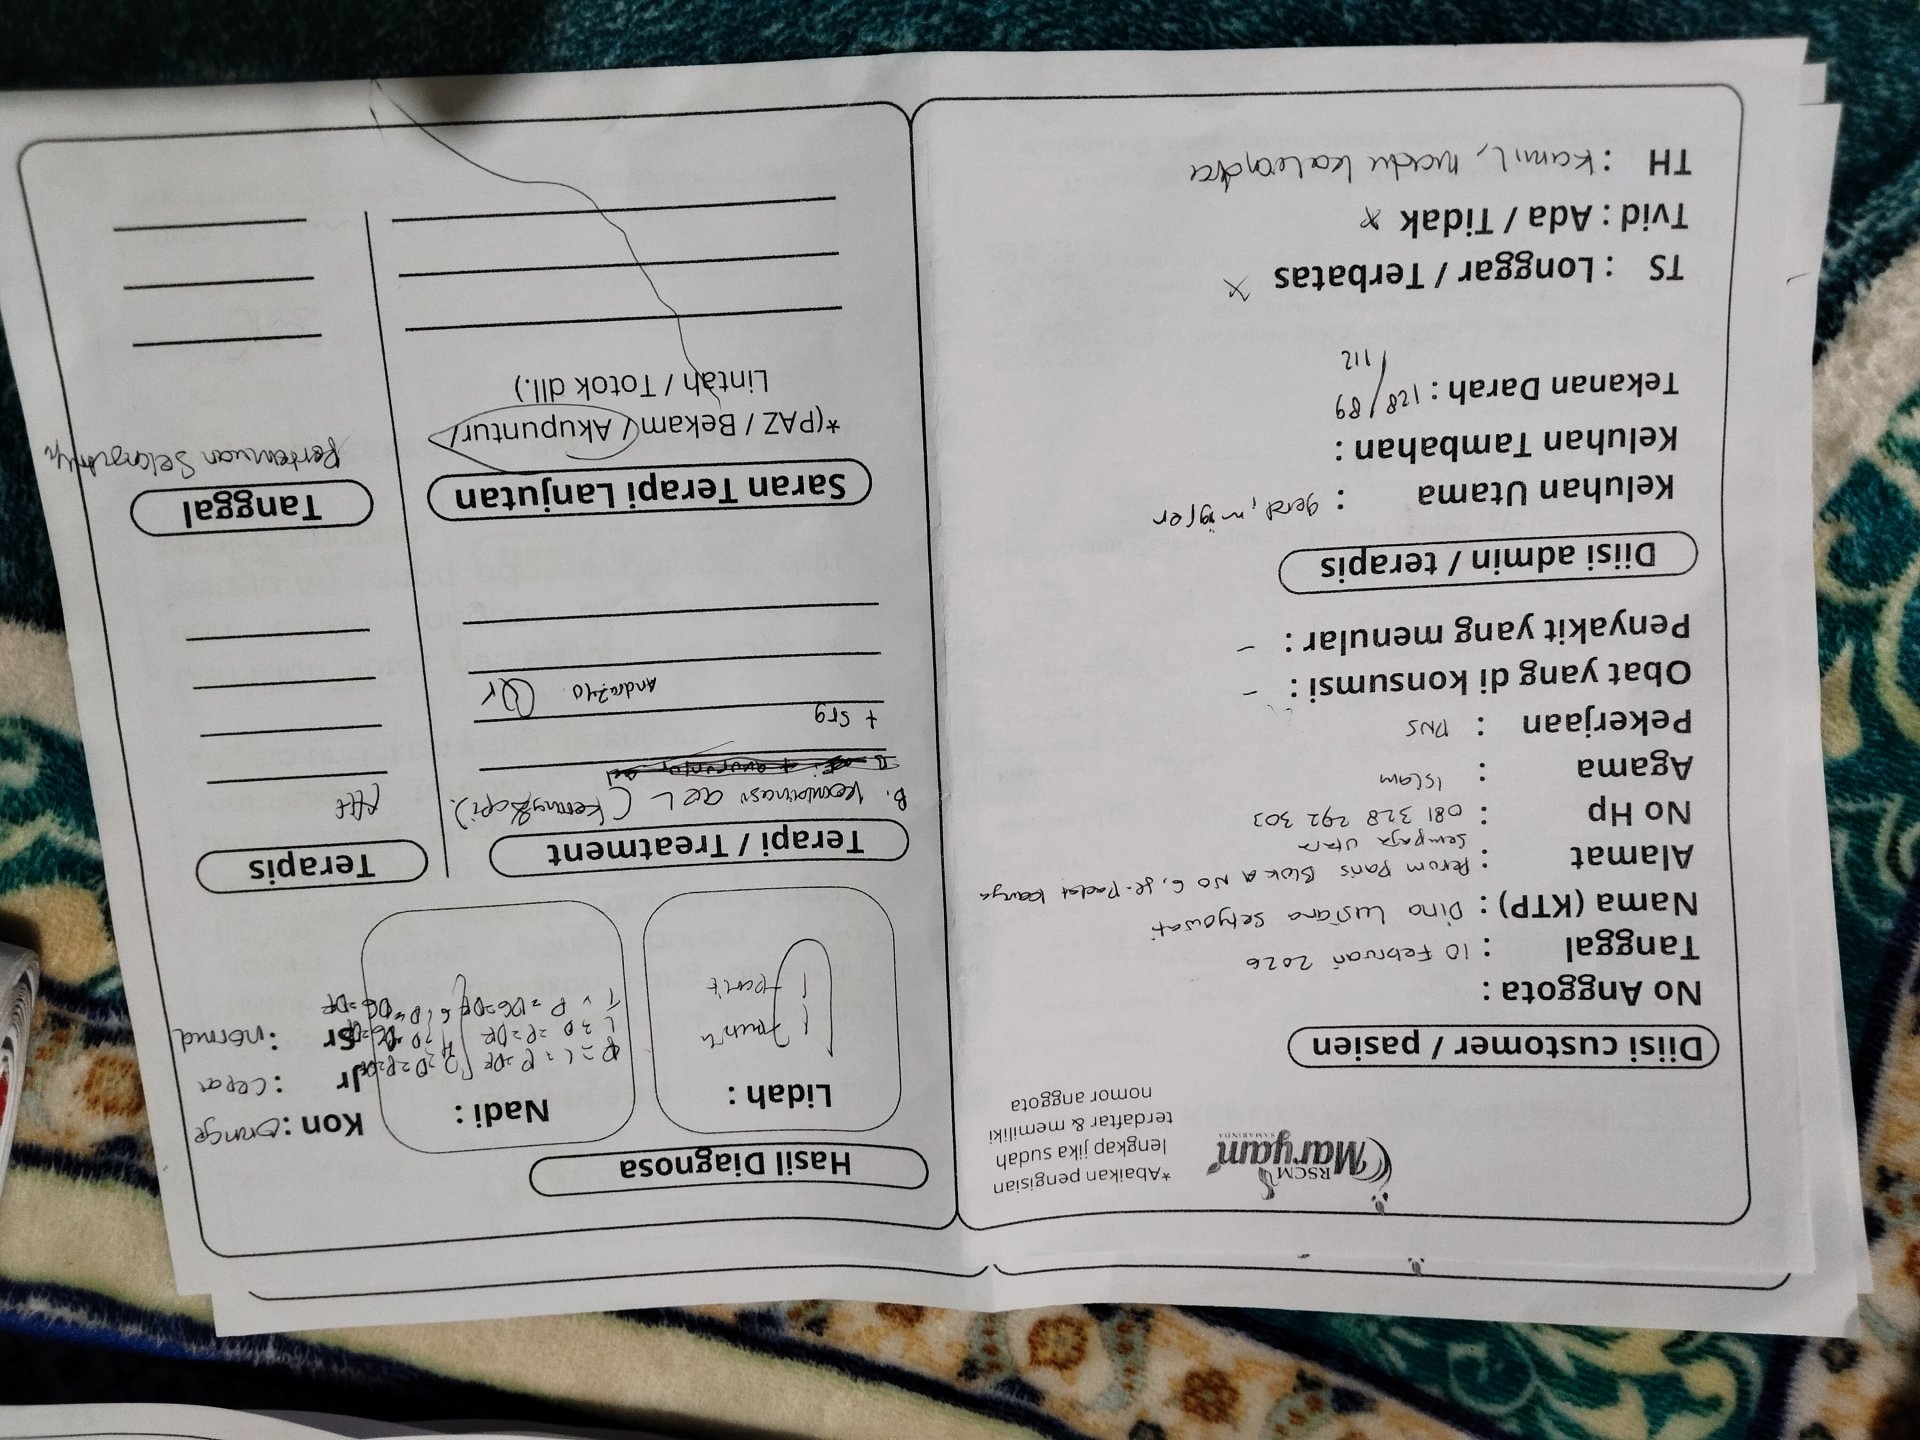 RSCM
Maryam
SAMARINDA
*Abaikan pengisian
lengkap jika sudah
terdaftar & memiliki
nomor anggota
Diisi customer / pasien
No Anggota :
Tanggal : 10 Februari 2026
Nama (KTP) : Dina Lusiana Setyowati
Alamat : Perum Paris Blok A No 6, Jl.
Sempaja Utara
No Hp : 081 328 292 302
Agama : Islam
Pekerjaan : PNS
Obat yang di konsumsi : -
Penyakit yang menular : -
Diisi admin / terapis
Keluhan Utama : gerd,
Keluhan Tambahan :
Tekanan Darah : 128/89
/112
TS : Longgar / Terbatas x
Tvid : Ada / Tidak x
TH : Kamil, madu
Hasil Diagnosa
Lidah :
Nadi :
Kon : Orange
Jr : Cepat
Sr : normal
Terapi / Treatment
Terapis
B. kombinasi
+ srg
Saran Terapi Lanjutan
Tanggal
*(PAZ / Bekam / Akupuntur /
Lintah / Totok dll.)
Pertemuan Selanjutnya